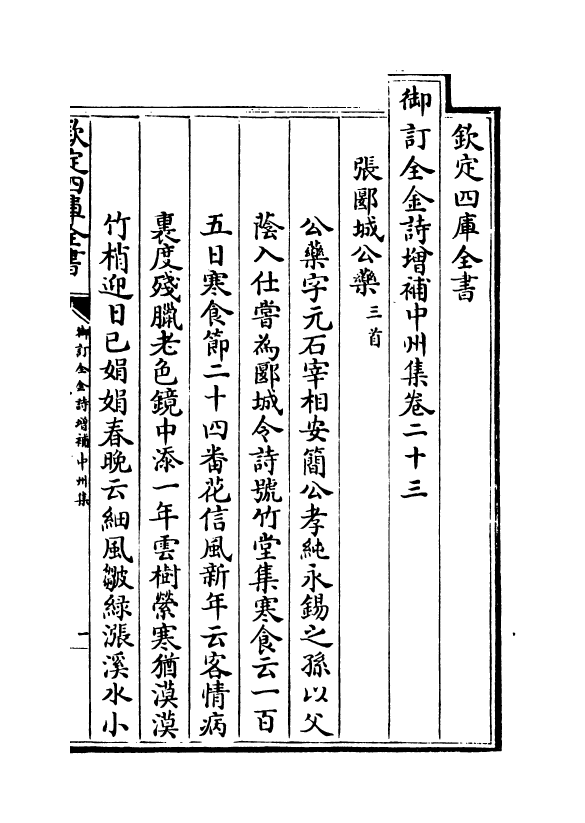 欽定四庫全書
御訂全金詩增補中州集卷二十三
張郾城公藥三首
公藥字元石宰相安簡公孝純永錫之孫以父
蔭入仕嘗為郾城令詩號竹堂集寒食云一百
五日寒食節二十四番花信風新年云客情病
裏度殘臘老色鏡中添一年雲樹縈寒猶漠漠
竹梢迎日已娟娟春晚云細風皺綠漲溪水小
欽定四庫全書
御訂全金詩增補中州集
一